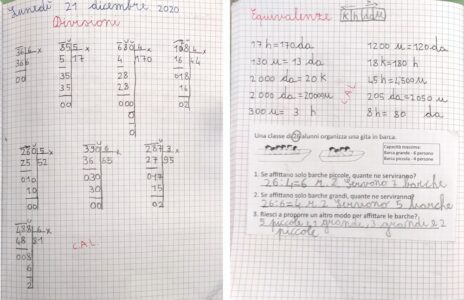 Lunedì 21 dicembre 2020
Divisioni
85 5 x
5 17
35
35
00
680 4 x
4 170
28
28
00
0
0
16 44
018
16
02
260 5 x
25 52
010
10
00
390 6 x
36 65
030
30
00
287 3 x
27 95
02
48 81
008
6
2
CAL
Equivalenze k h da u
17 h = 170 da
130 u = 13 da
2000 da = 20 k
2000 da = 20000 u
300 u = 3 h
CAL
1200 u = 120 da
18 k = 180 h
45 h = 4500 u
205 da = 2050 u
8 h = 80 da
Una classe di 26 alunni organizza una gita in barca.
Capacità massima:
Barca grande - 6 persone
Barca piccola - 4 persone
1. Se affittano solo barche piccole, quante ne serviranno?
26:4=6 r. 2 Servono 7 barche
2. Se affittano solo barche grandi, quante ne serviranno?
26:6=4 r. 2 Servono 5 barche
3. Riesci a proporre un altro modo per affittare le barche?
5 piccole e 1 grande, 3 grandi e 2
piccole